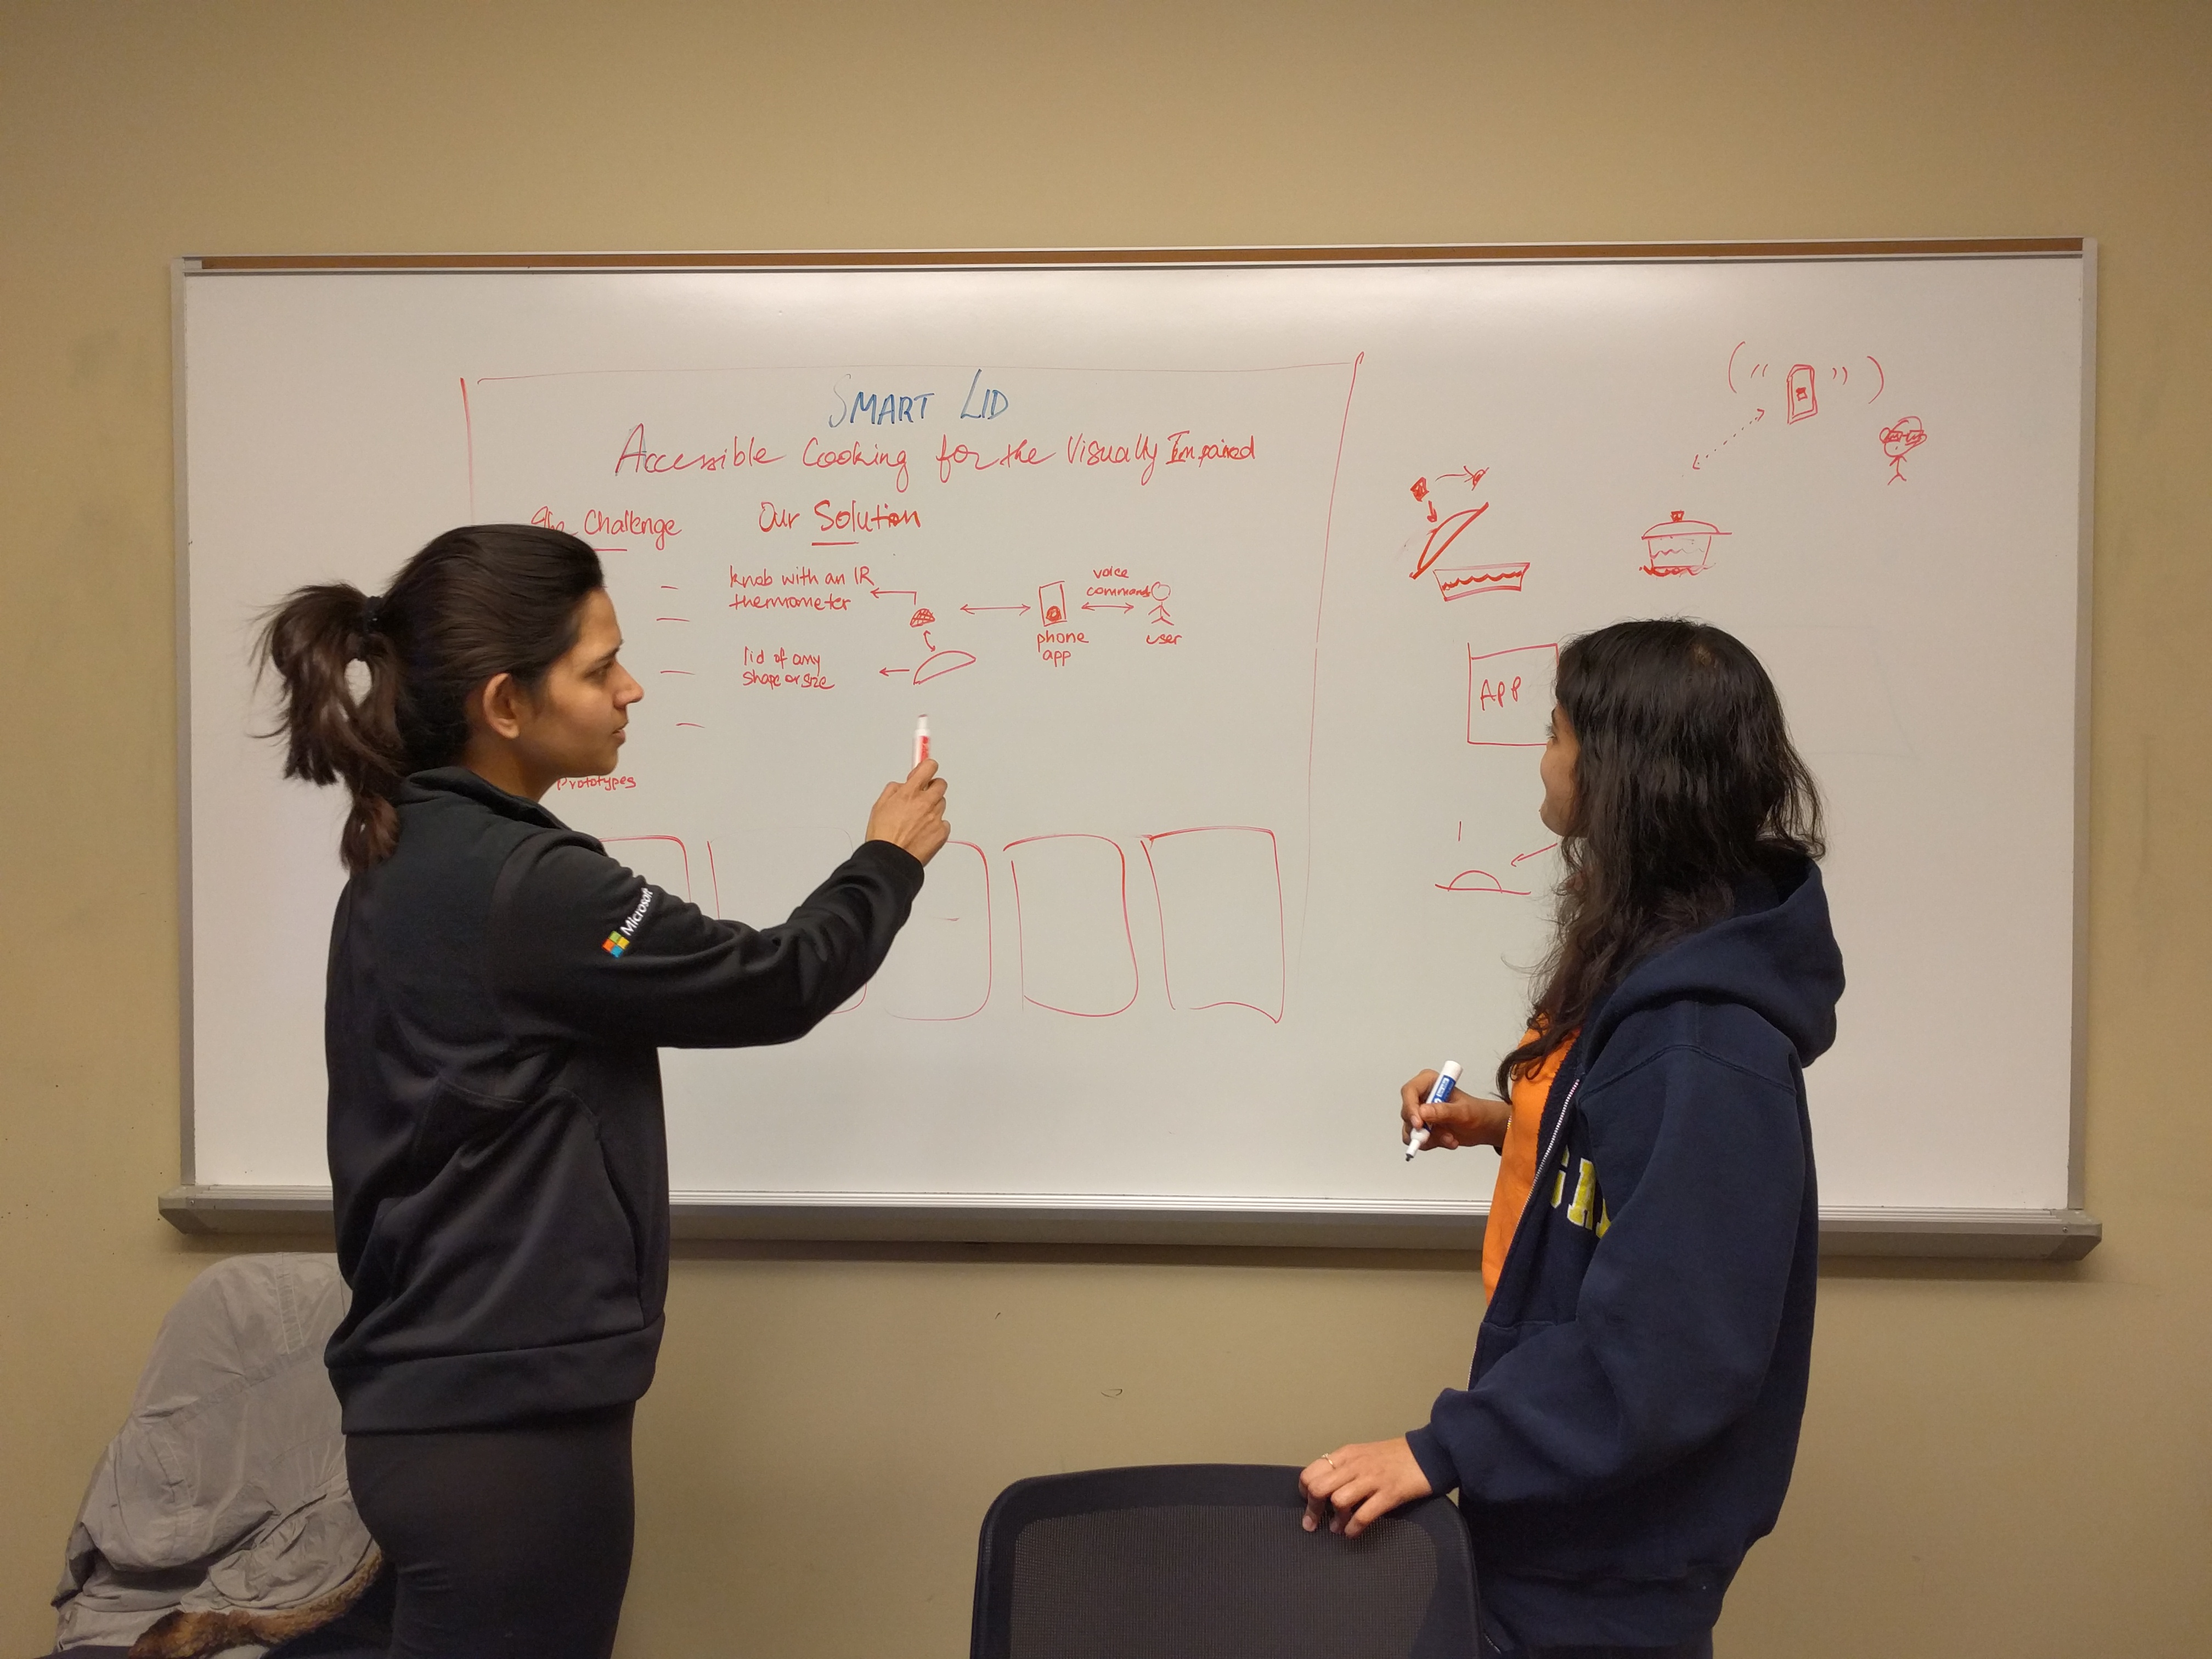 SMART LID
Accessible Cooking for the Visually Impaired
The Challenge
Our Solution
knob with an IR
thermometer
lid of any
shape or size
voice
command
phone
app
user
Prototypes
APP
Microsoft